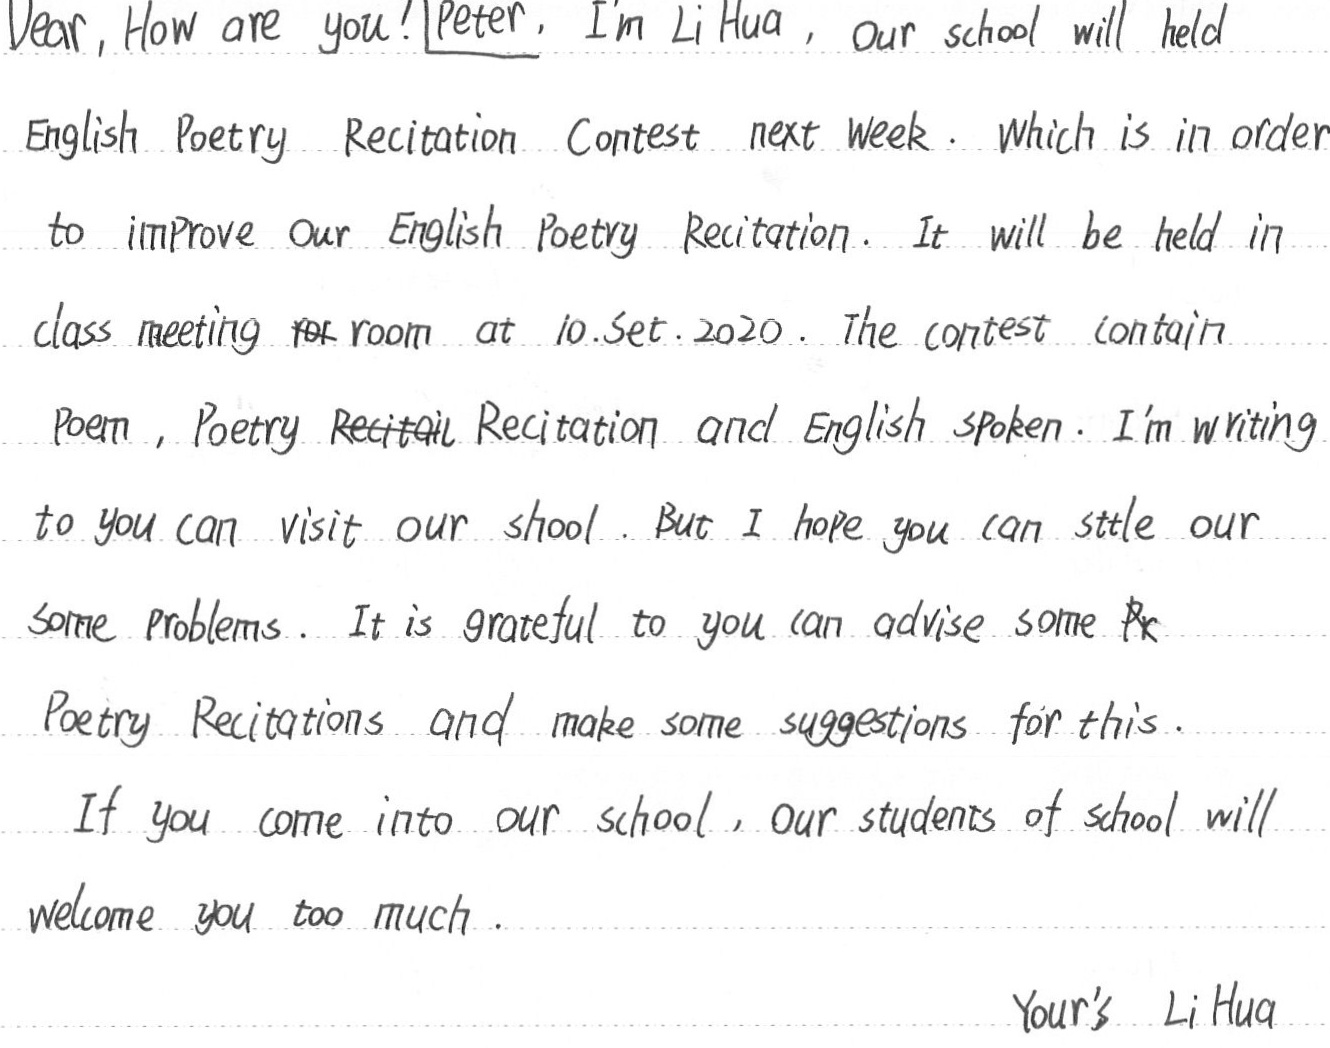 Dear, How are you! Peter, I'm Li Hua, Our school will held
English Poetry Recitation Contest next week. Which is in order
to improve our English Poetry Recitation. It will be held in
class meeting room at 10.Set.2020. The contest contain
Poem, Poetry Recitation and English spoken. I'm writing
to you can visit our shool. But I hope you can sttle our
some problems. It is grateful to you can advise some
Poetry Recitations and make some suggestions for this.
If you come into our school, Our students of school will
welcome you too much.
Your's Li Hua